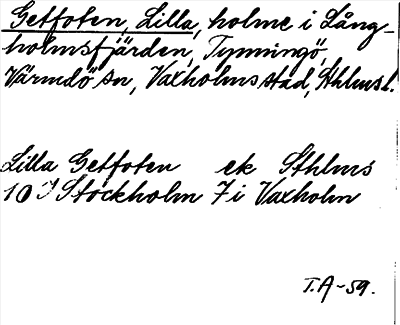 Getfoten, Lilla, holme i Lång-
holmsfjärden, Tynningö,
Värmdö sn, Vaxholms stad, Sthlms l.
Lilla Getfoten ek Sthlms
10 J Stockholm 7 i Vaxholm
T.A-59.